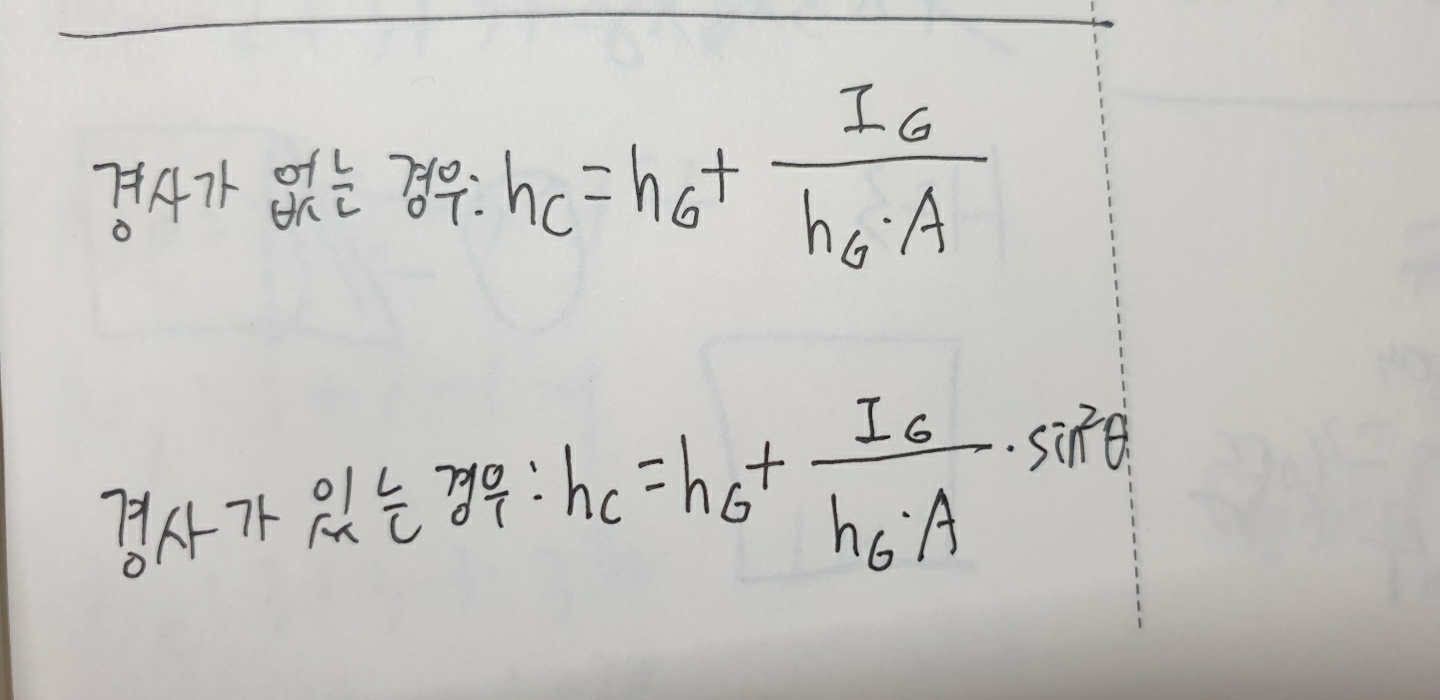 경사가 없는 경우: h_C = h_G + \frac{I_G}{h_G · A}
경사가 있는 경우: h_C = h_G + \frac{I_G}{h_G · A} · sin²θ